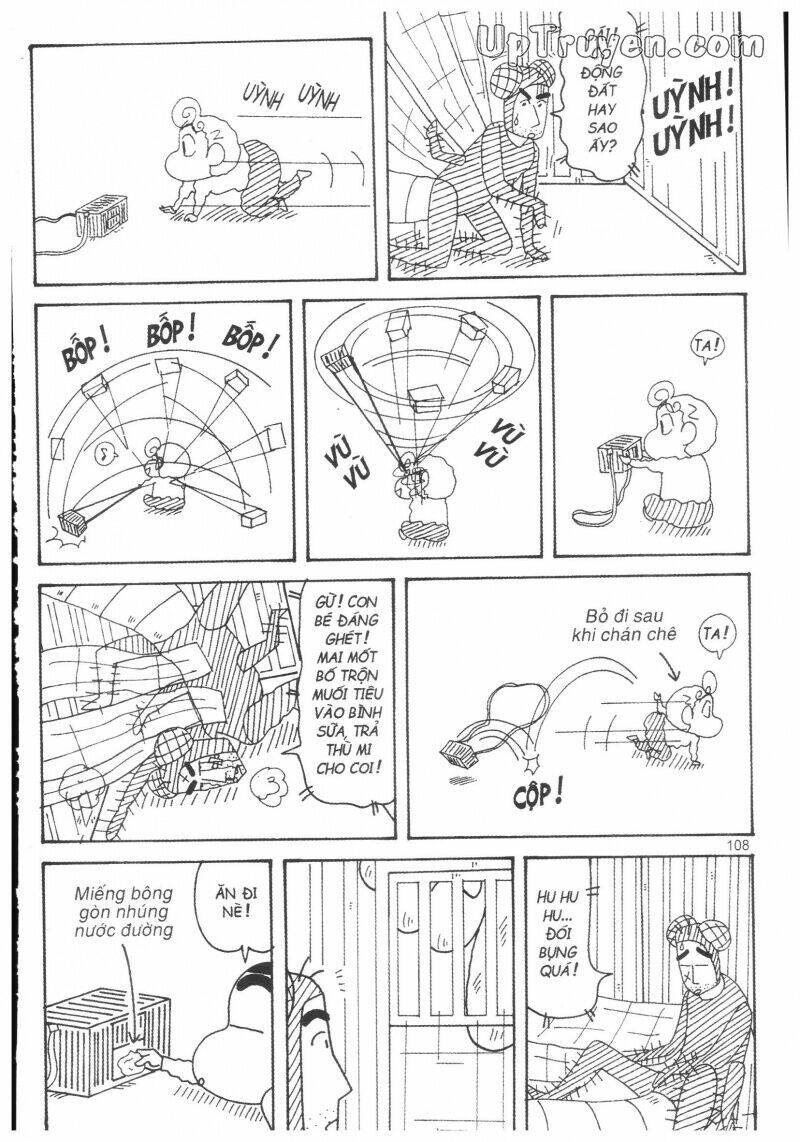 UpTruyen.com
UỲNH UỲNH
ĐỘNG
ĐẤT
HAY
SAO
ẤY?
UỲNH!
UỲNH!
BỐP! BỐP! BỐP!
VÙ
VÙ
VÙ
VÙ
TA!
GỪ! CON
BÉ ĐÁNG
GHÉT!
MAI MỐT
BỐ TRỘN
MUỐI TIÊU
VÀO BÌNH
SỮA, TRẢ
THÙ MI
CHO COI!
Bỏ đi sau
khi chán chê
TA!
CỘP!
108
Miếng bông
gòn nhúng
nước đường
ĂN ĐI
NÈ!
HU HU
HU...
ĐÓI
BỤNG
QUÁ!